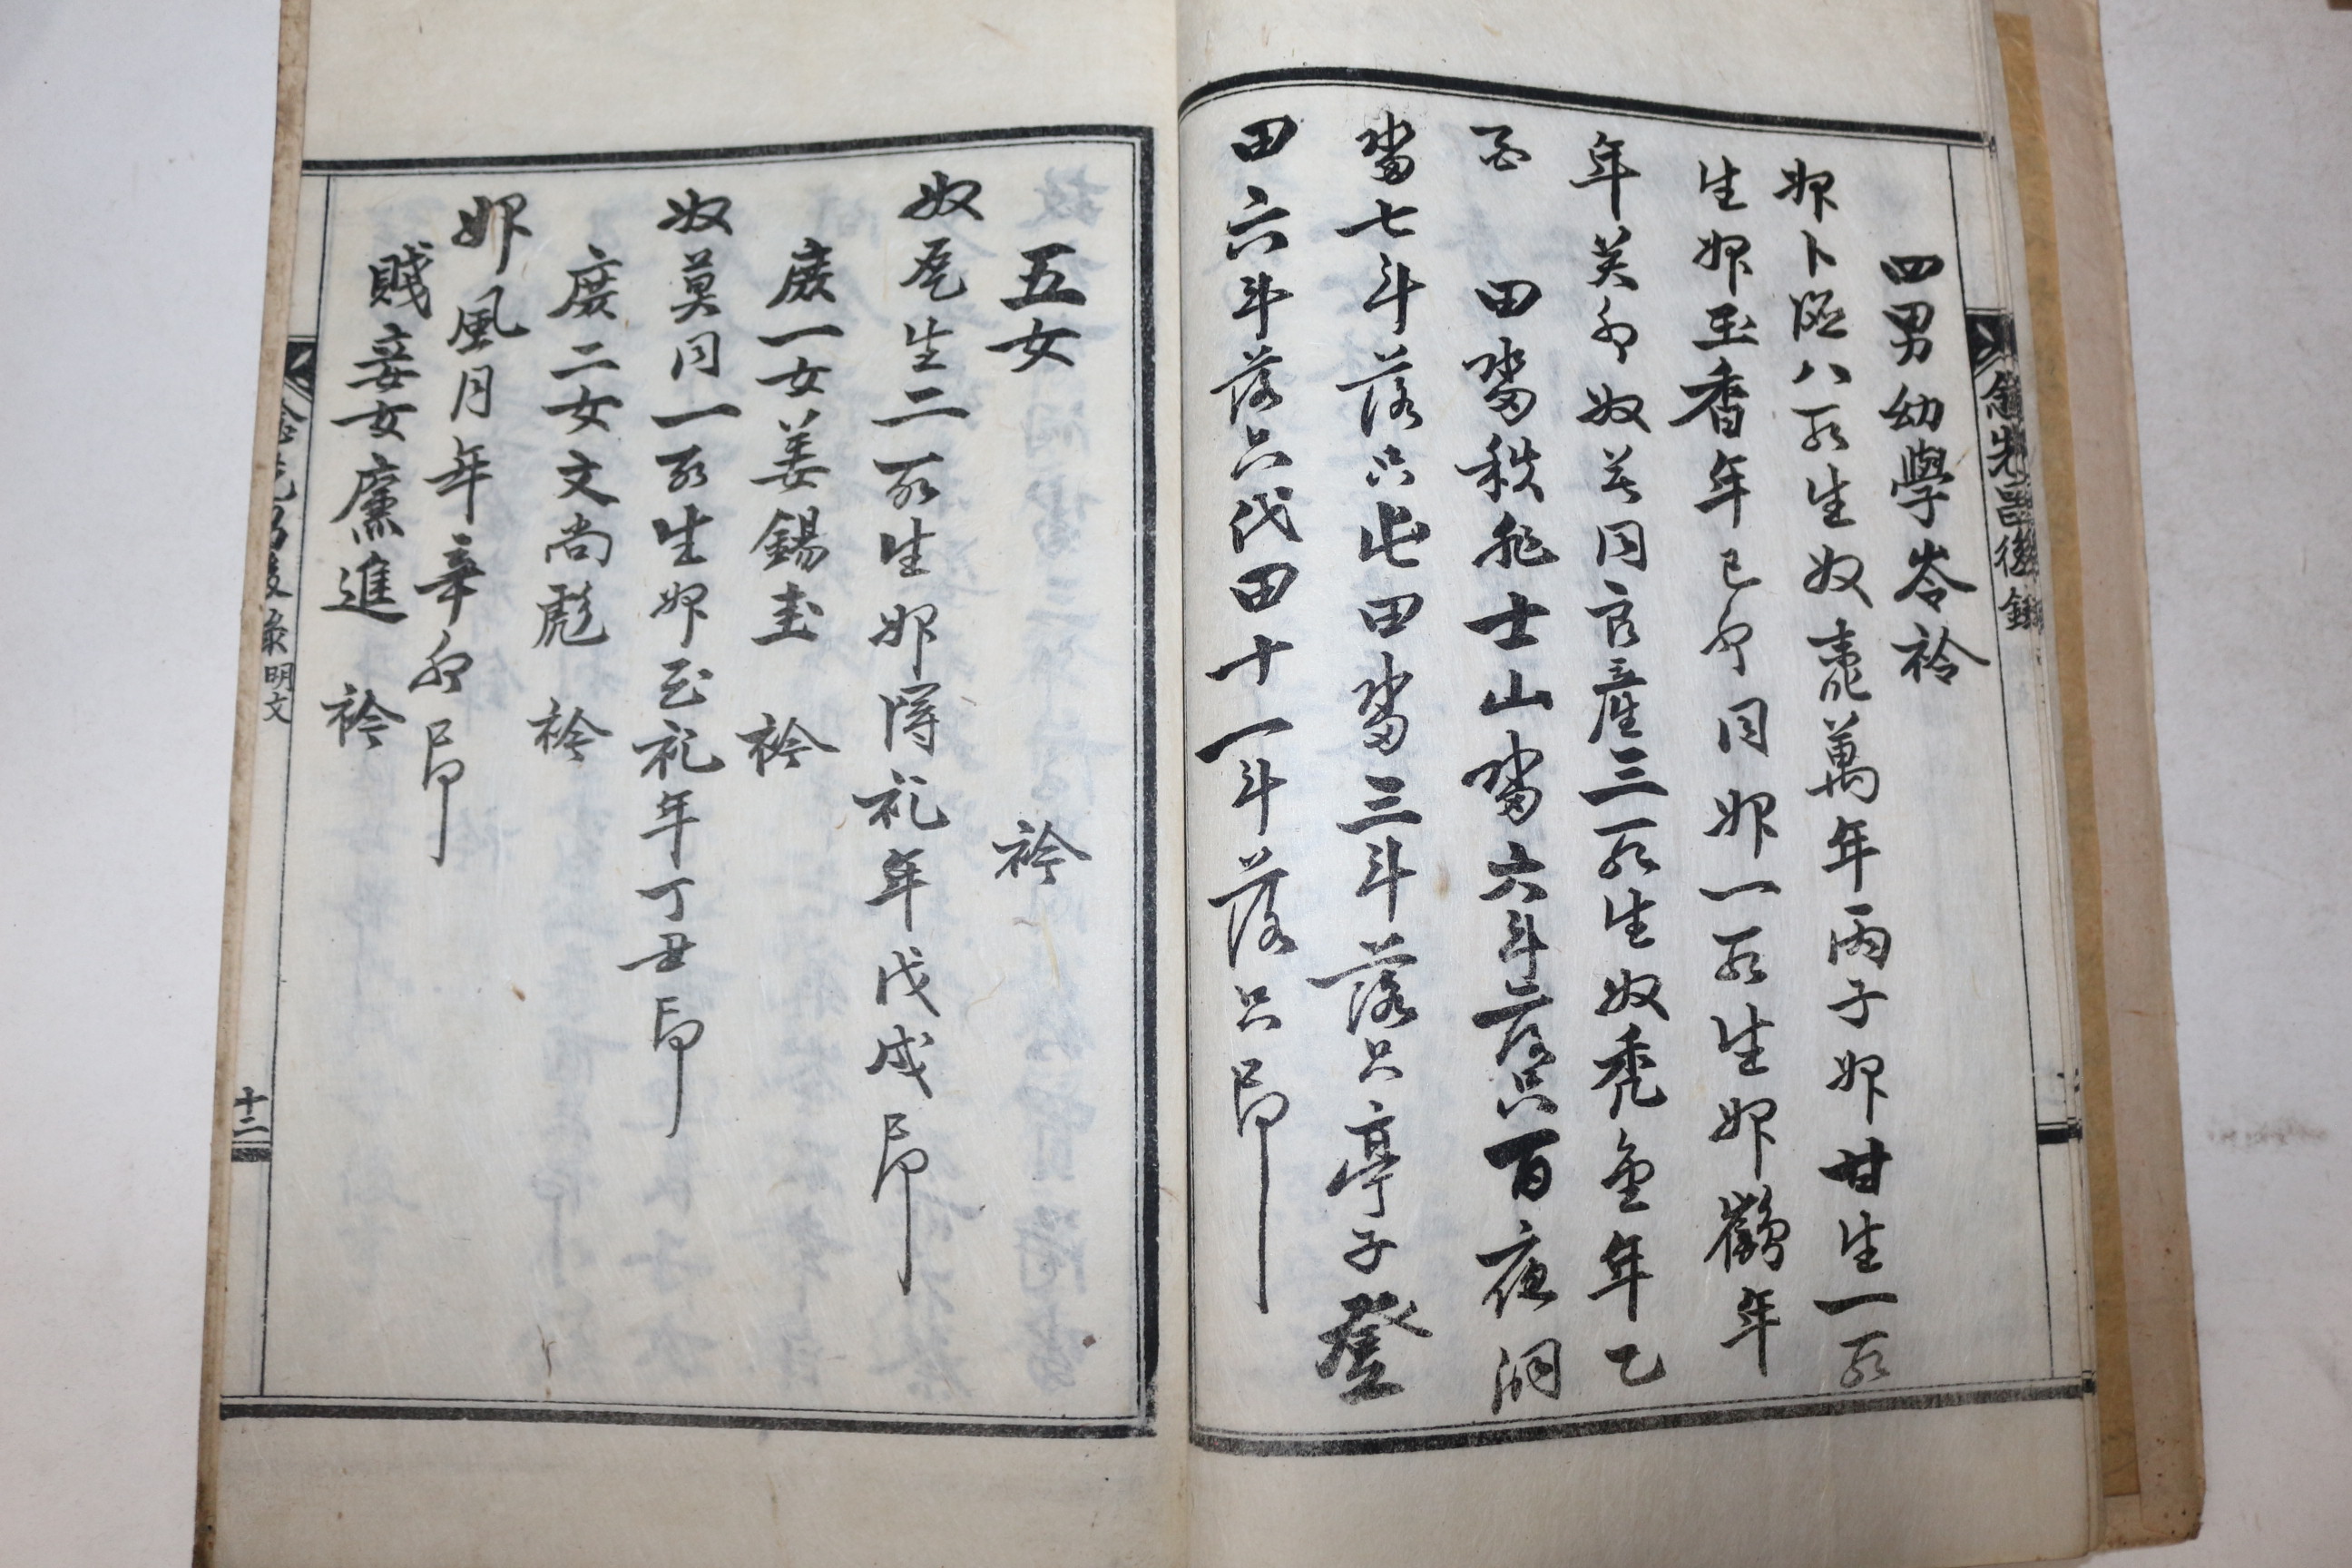 四男幼學岺衿
婢卜德八所生奴禿萬年丙子婢甘生一所
生婢玉香年己卯同婢一所生婢鶴年
年癸卯奴 同良産三所生奴禿金年乙
田畓秩 士山畓六斗落只百夜洞
畓七斗落只 田畓三斗落只亭子登
田六斗落只代田十一斗落只印
五女 衿
奴 生二所生婢 礼年戊戌印
庶一女姜錫圭 衿
奴莫同一所生婢 礼年丁丑印
庶二女文尚彪 衿
婢風月年辛卯印
賤妾女 進 衿
後錄
明文
十二